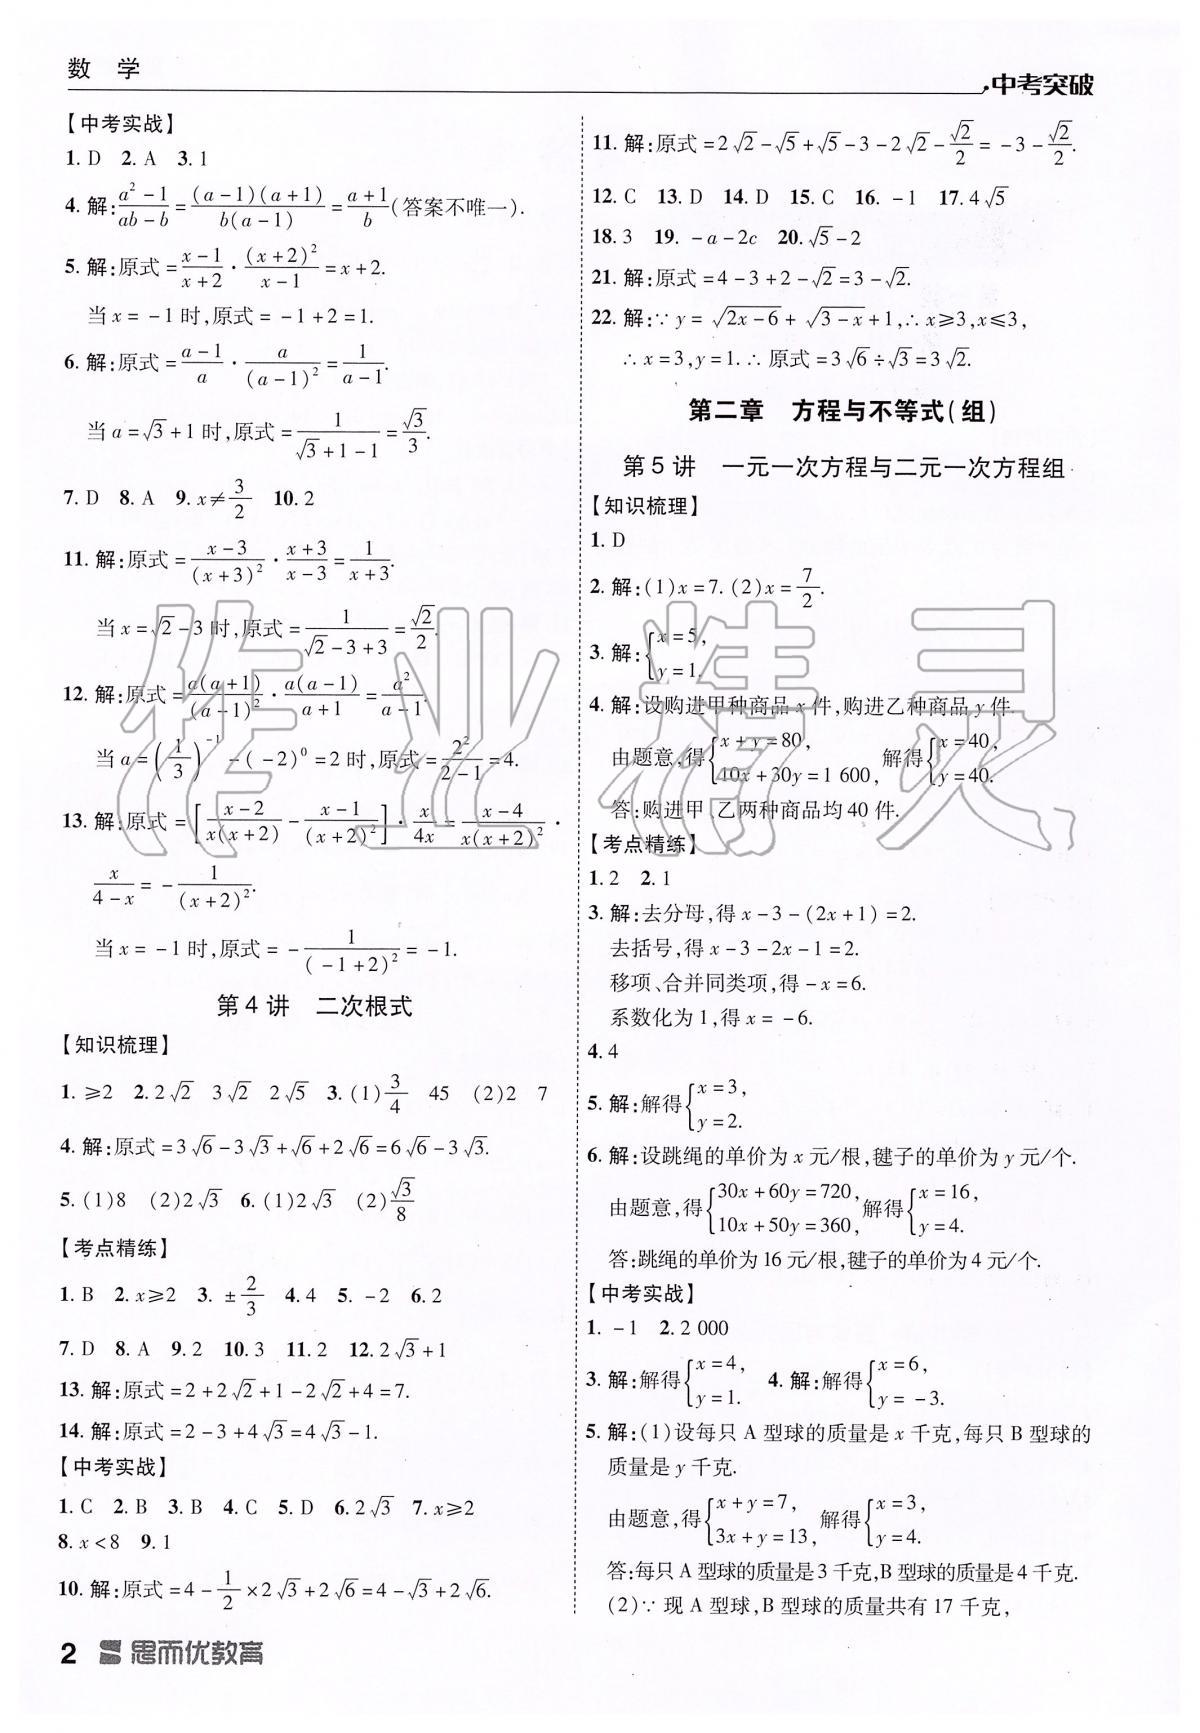 数 学
中考突破
【中考实战】
1. D 2. A 3. 1
4. 解:\frac{a²-1}{ab-b}=\frac{(a-1)(a+1)}{b(a-1)}=\frac{a+1}{b}(答案不唯一).
5. 解:原式=\frac{x-1}{x+2}·\frac{(x+2)²}{x-1}=x+2.
当x=-1时,原式=-1+2=1.
6. 解:原式=\frac{a-1}{a}·\frac{a}{(a-1)²}=\frac{1}{a-1}.
当a=√3+1时,原式=\frac{1}{√3+1-1}=\frac{√3}{3}.
7. D 8. A 9. x≠\frac{3}{2} 10. 2
11. 解:原式=\frac{x-3}{(x+3)²}·\frac{x+3}{x-3}=\frac{1}{x+3}.
当x=√2-3时,原式=\frac{1}{√2-3+3}=\frac{√2}{2}.
12. 解:原式=\frac{a(a+1)}{(a-1)²}·\frac{a(a-1)}{a+1}=\frac{a²}{a-1}.
当a=(\frac{1}{3})⁻¹-(-2)⁰=2时,原式=\frac{2²}{2-1}=4.
13. 解:原式=[\frac{x-2}{x(x+2)}-\frac{x-1}{(x+2)²}]·\frac{x}{4x}=\frac{x-4}{x(x+2)²}·
\frac{x}{4-x}=-\frac{1}{(x+2)²}.
当x=-1时,原式=-\frac{1}{(-1+2)²}=-1.
第4讲 二次根式
【知识梳理】
1. ≥2 2. 2√2 3√2 2√5 3. (1)\frac{3}{4} 45 (2)2 7
4. 解:原式=3√6-3√3+√6+2√6=6√6-3√3.
5. (1)8 (2)2√3 6. (1)2√3 (2)\frac{√3}{8}
【考点精练】
1. B 2. x≥2 3. ±\frac{2}{3} 4. 4 5. -2 6. 2
7. D 8. A 9. 2 10. 3 11. 2 12. 2√3+1
13. 解:原式=2+2√2+1-2√2+4=7.
14. 解:原式=2-3+4√3=4√3-1.
【中考实战】
1. C 2. B 3. B 4. C 5. D 6. 2√3 7. x≥2
8. x<8 9. 1
10. 解:原式=4-\frac{1}{2}×2√3+2√6=4-√3+2√6.
11. 解:原式=2√2-√5+√5-3-2√2-\frac{√2}{2}=-3-\frac{√2}{2}.
12. C 13. D 14. D 15. C 16. -1 17. 4√5
18. 3 19. -a-2c 20. √5-2
21. 解:原式=4-3+2-√2=3-√2.
22. 解:∵y=√(2x-6)+√(3-x)+1,∴x≥3,x≤3,
∴x=3,y=1.∴原式=3√6÷√3=3√2.
第二章 方程与不等式(组)
第5讲 一元一次方程与二元一次方程组
【知识梳理】
1. D
2. 解:(1)x=7. (2)x=\frac{7}{2}.
3. 解:{x=5, y=1.
4. 解:设购进甲种商品x件,购进乙种商品y件.
由题意,得{x+y=80, 10x+30y=1 600, 解得{x=40, y=40.
答:购进甲、乙两种商品均40件.
【考点精练】
1. 2 2. 1
3. 解:去分母,得x-3-(2x+1)=2.
去括号,得x-3-2x-1=2.
移项、合并同类项,得-x=6.
系数化为1,得x=-6.
4. 4
5. 解:解得{x=3, y=2.
6. 解:设跳绳的单价为x元/根,毽子的单价为y元/个.
由题意,得{30x+60y=720, 10x+50y=360, 解得{x=16, y=4.
答:跳绳的单价为16元/根,毽子的单价为4元/个.
【中考实战】
1. -1 2. 2 000
3. 解:解得{x=4, y=1. 4. 解:解得{x=6, y=-3.
5. 解:(1)设每只A型球的质量是x千克,每只B型球的
质量是y千克.
由题意,得{x+y=7, 3x+y=13, 解得{x=3, y=4.
答:每只A型球的质量是3千克,B型球的质量是4千克.
(2)∵现A型球,B型球的质量共有17千克,
2 思而优教育
作业精灵